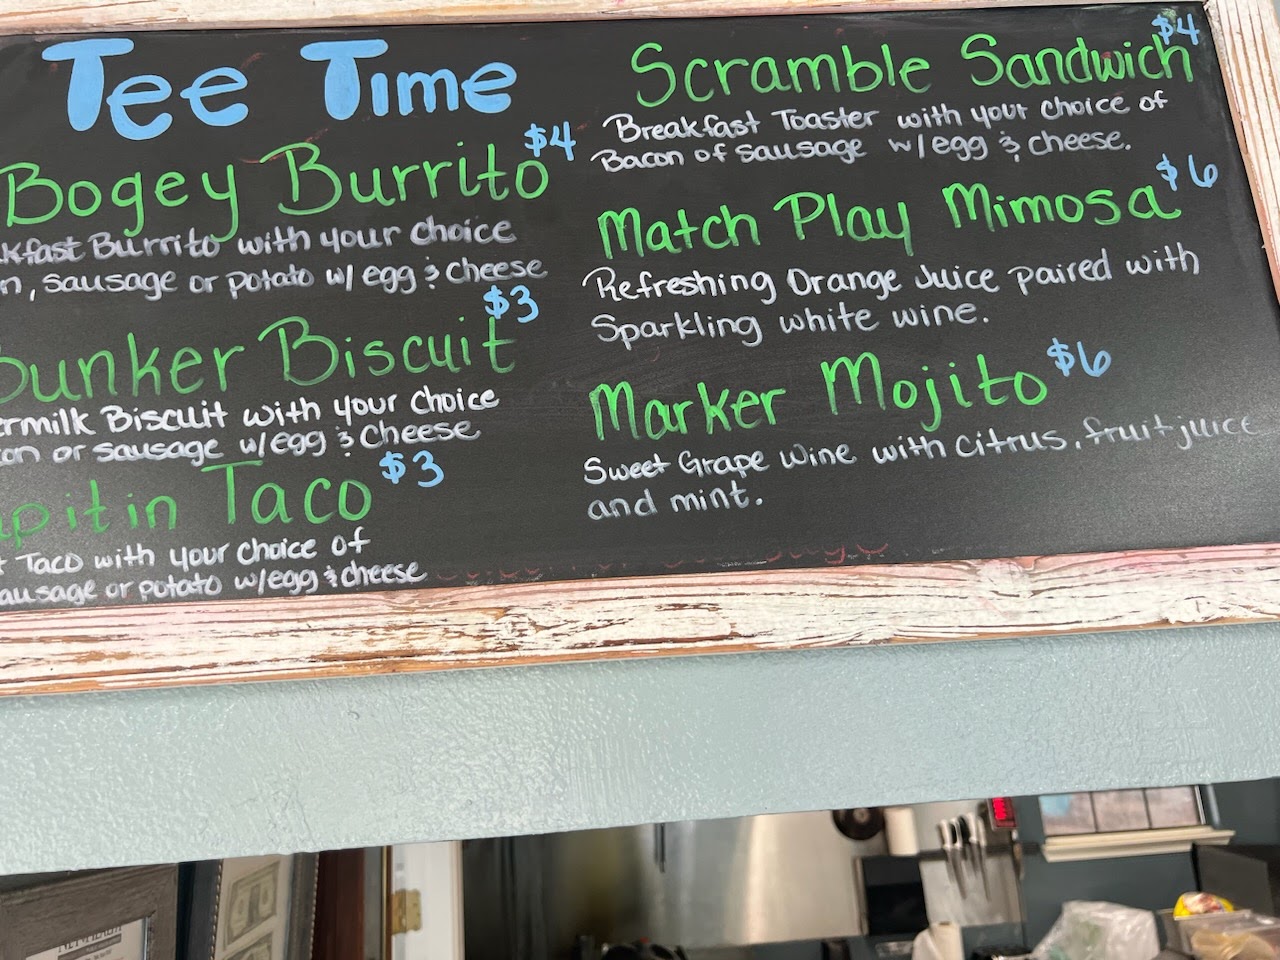 Tee Time
Bogey Burrito $4
kfast Burrito with your choice
n, sausage or potato w/ egg & cheese
Bunker Biscuit $3
ermilk Biscuit with your choice
con or sausage w/egg & cheese
apitin Taco $3
t Taco with your choice of
ausage or potato w/egg & cheese
Scramble Sandwich $4
Breakfast Toaster with your choice of
Bacon of sausage w/egg & cheese.
Match Play Mimosa $6
Refreshing Orange Juice paired with
Sparkling white wine.
Marker Mojito $6
Sweet Grape Wine with citrus, fruit juice
and mint.